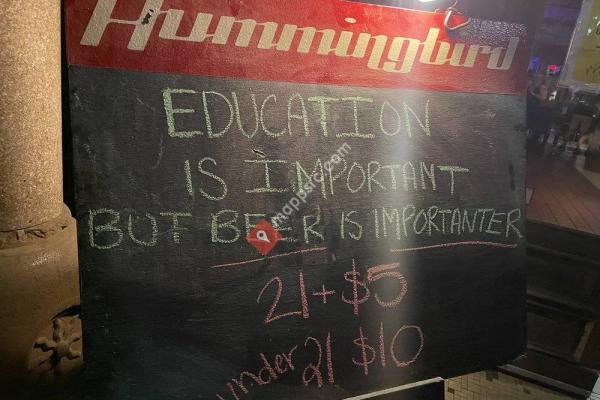 Hummingbird
EDUCATION
IS IMPORTANT
BUT BEER IS IMPORTANTER
21+ $5
under 21 $10
mappsrc.com